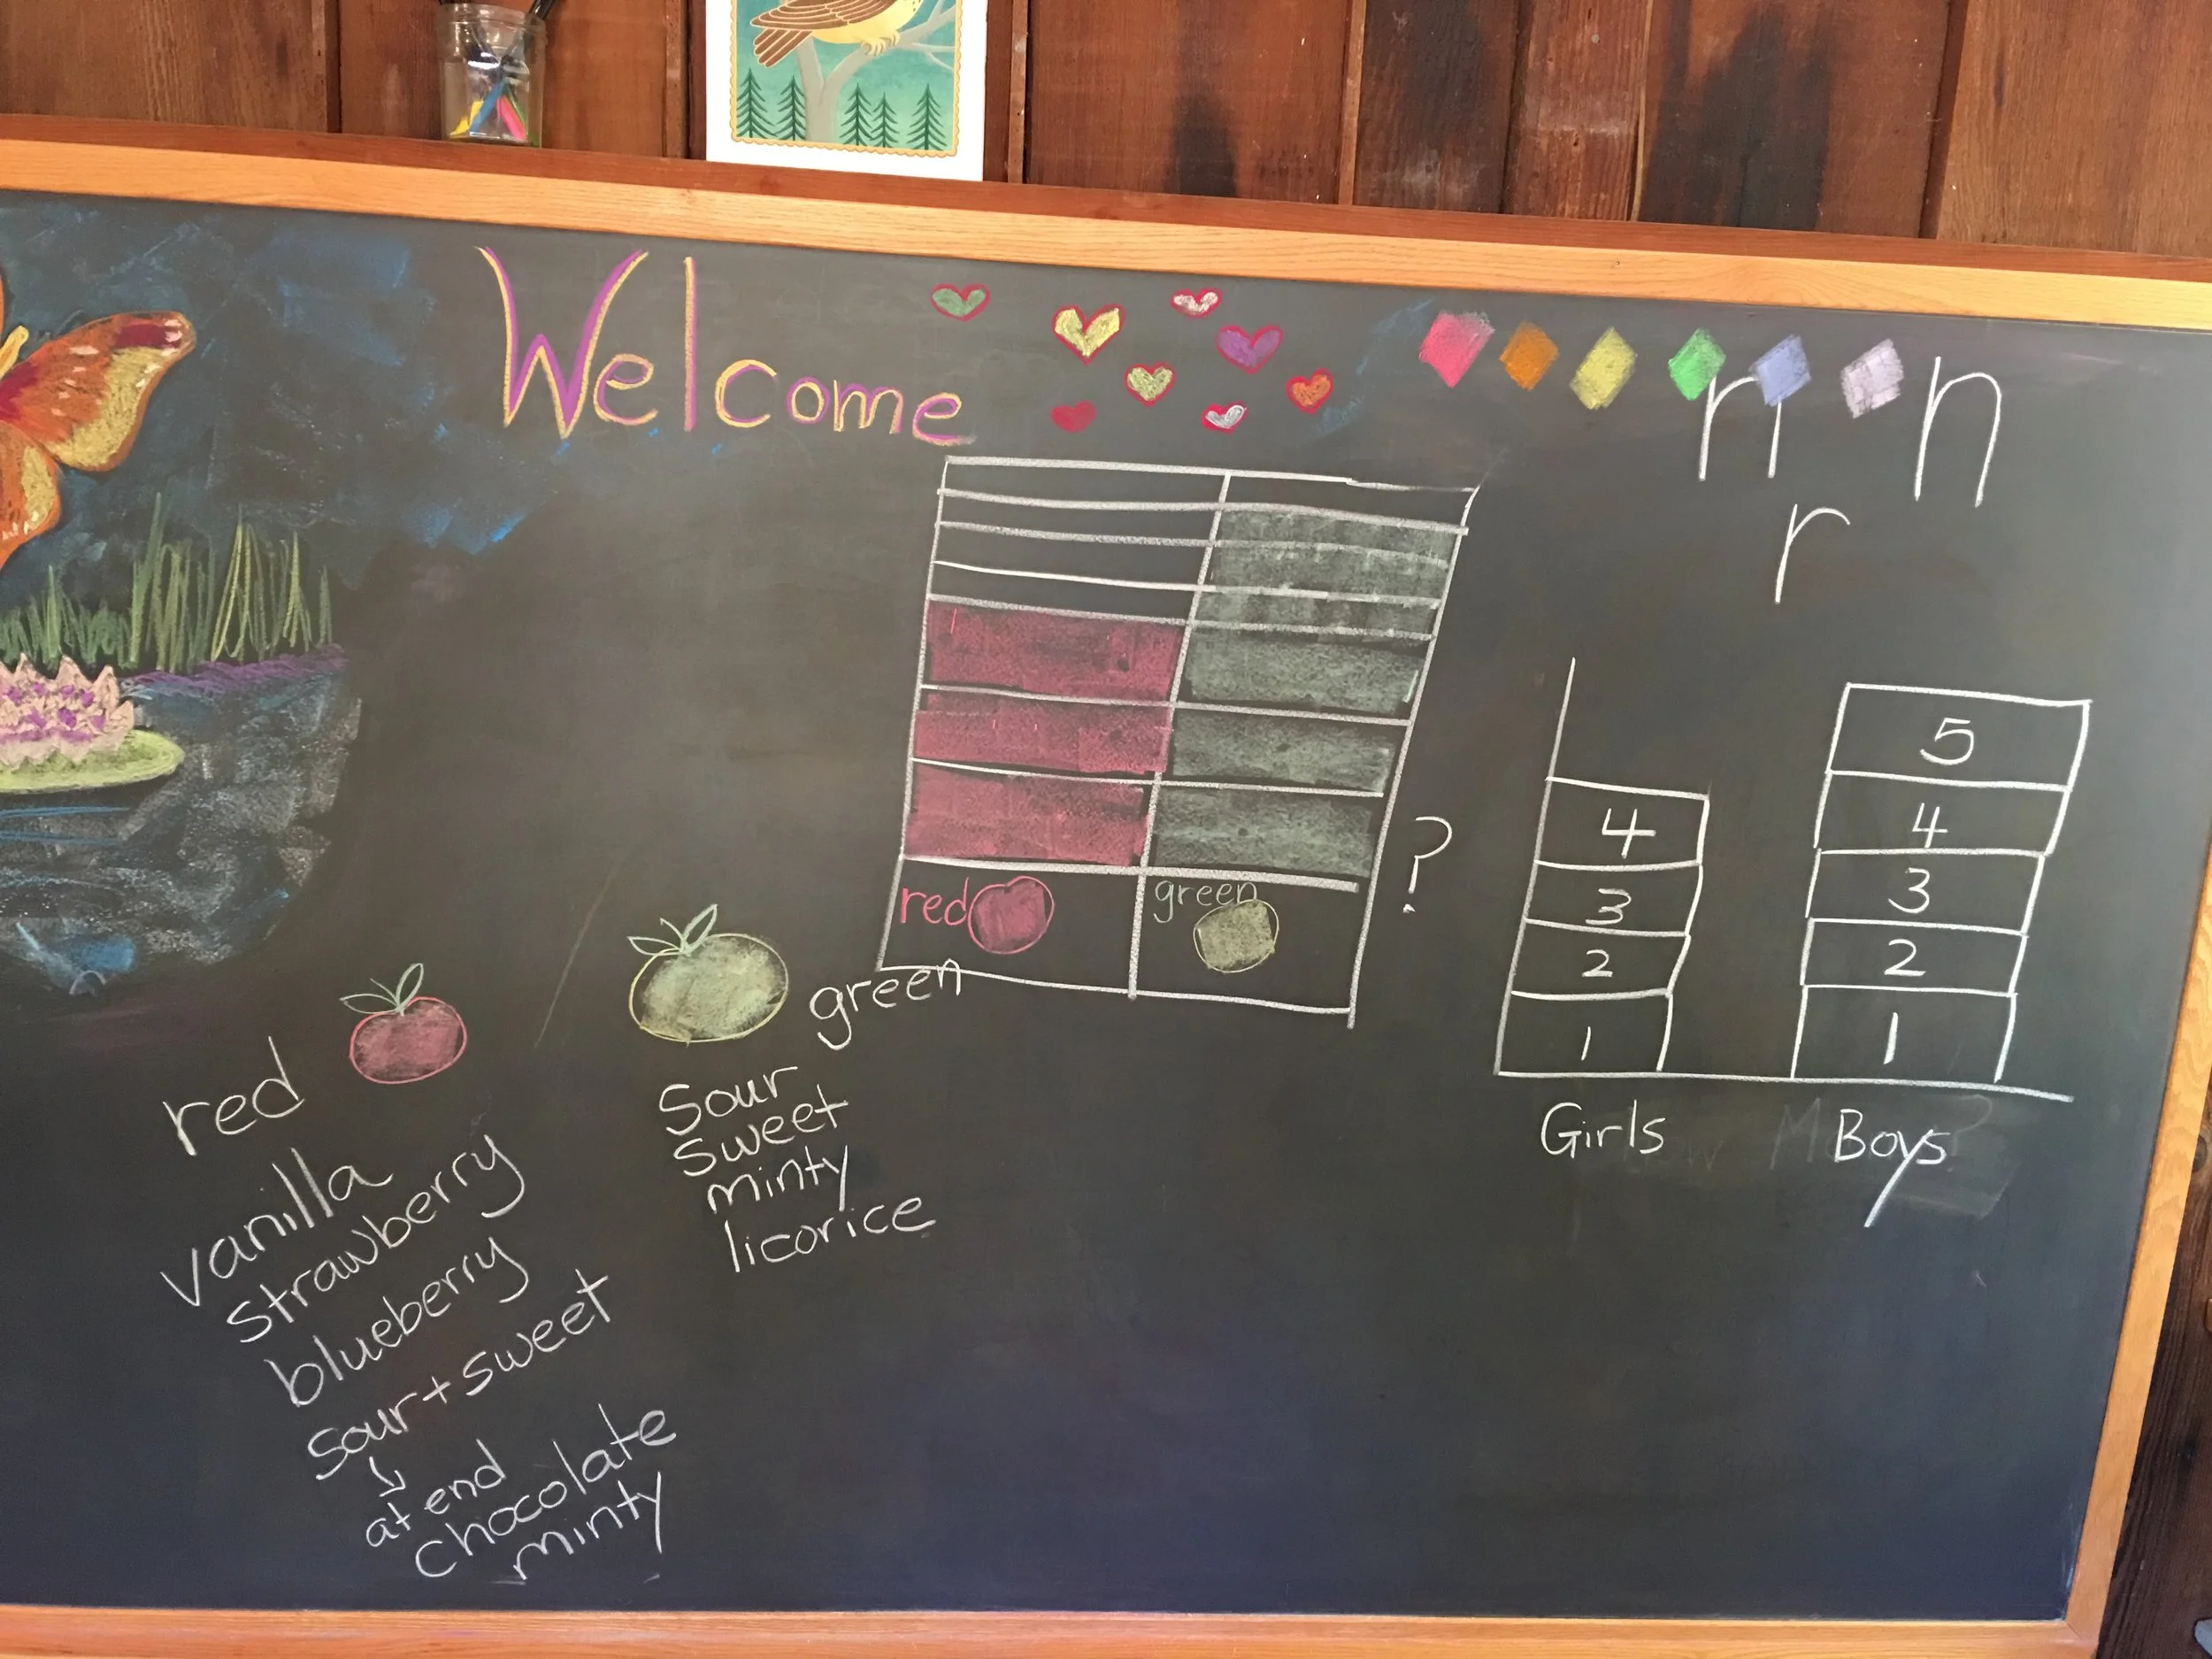 Welcome
n n
r
red green
?
4
3
2
1
Girls
5
4
3
2
1
Boys
red
vanilla
strawberry
blueberry
sour + sweet
↓
at end
chocolate
minty
green
Sour
sweet
minty
licorice